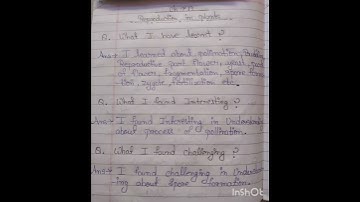 Reproduction in plants
Q. What I have learnt ?
Ans→ I learned about pollination, Budding
Reproductive part flowers, wheel, part
of flower, fragmentation, spore forma-
tion, zygote, etc.
Q. What I found Interesting ?
Ans→ I found Interesting in Understanding
about process of pollination.
Q. What I found challenging ?
Ans→ I found challenging in Understand-
ing about Spore formation.
InShOt